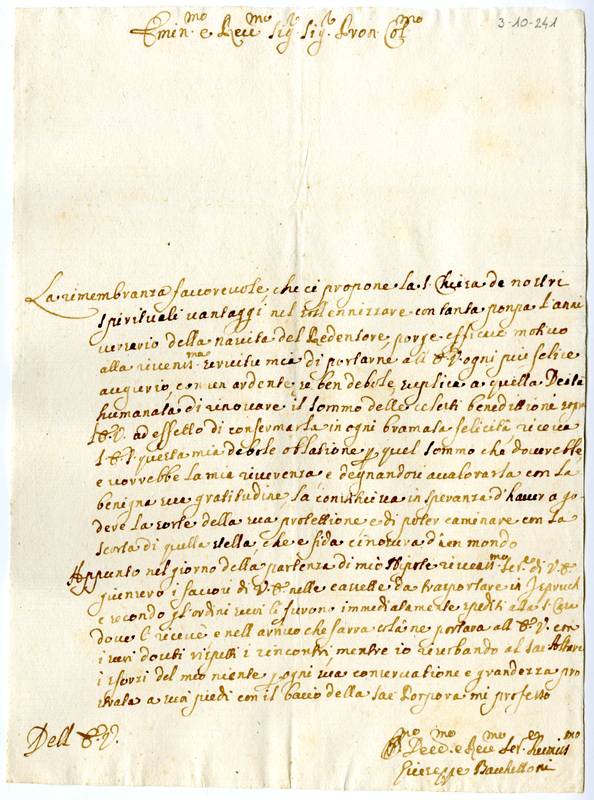 3-10-241
Emin.mo e Reu.mo Sig.r Sig.r Pron Col.mo
La rimembranza fauoreuole, che ci propone la S. Chiesa de nostri
spirituali uantaggi, nel sollennizzare con tanta ponpa l'anni
uersario della nauita del Redentore, porge efficace motiuo
alla riuerentis.ma seruitu mia di portarne all E.V. ogni piu felice
augurio, con un ardente, se ben debole, suplica a quella Deità
humanata di rinouare il sommo delle celesti benedittioni sopra
l'E.V. ad effetto di confermarla in ogni bramata felicità, riceua
l'E.V. questa mia debole oblatione p quel sommo che douerebbe
e vorrebbe la mia riuerenza e degnandosi aualorarla con la
benigna sua gratitudine, la constituirà in speranza d'hauer a go
dere la sorte della sua protettione e di poter caminare con la
scorta di quella stella, che e fida cinosura d'un mondo
Appunto nel giorno della partenza di mio Nipote
i fauori di V.E nelle cassette da trasportare in Jspruch
e secondo gl'ordini suoi li furon immediatamente spediti alla S. Casa
doue l riceuè e nell arriuo che farra colà ne portara all E.V. con
i suoi douti rispetti i rincontri mentre io riserbando al
i sforzi del mio niente p ogni sua conseruatione e grandezza pro
strato a suoi piedi con il bacio della Sac. Porpora mi professo
Dell E.V.
Deuo. e Reu.mo Ser.e
Giuseppe Bacchettoni